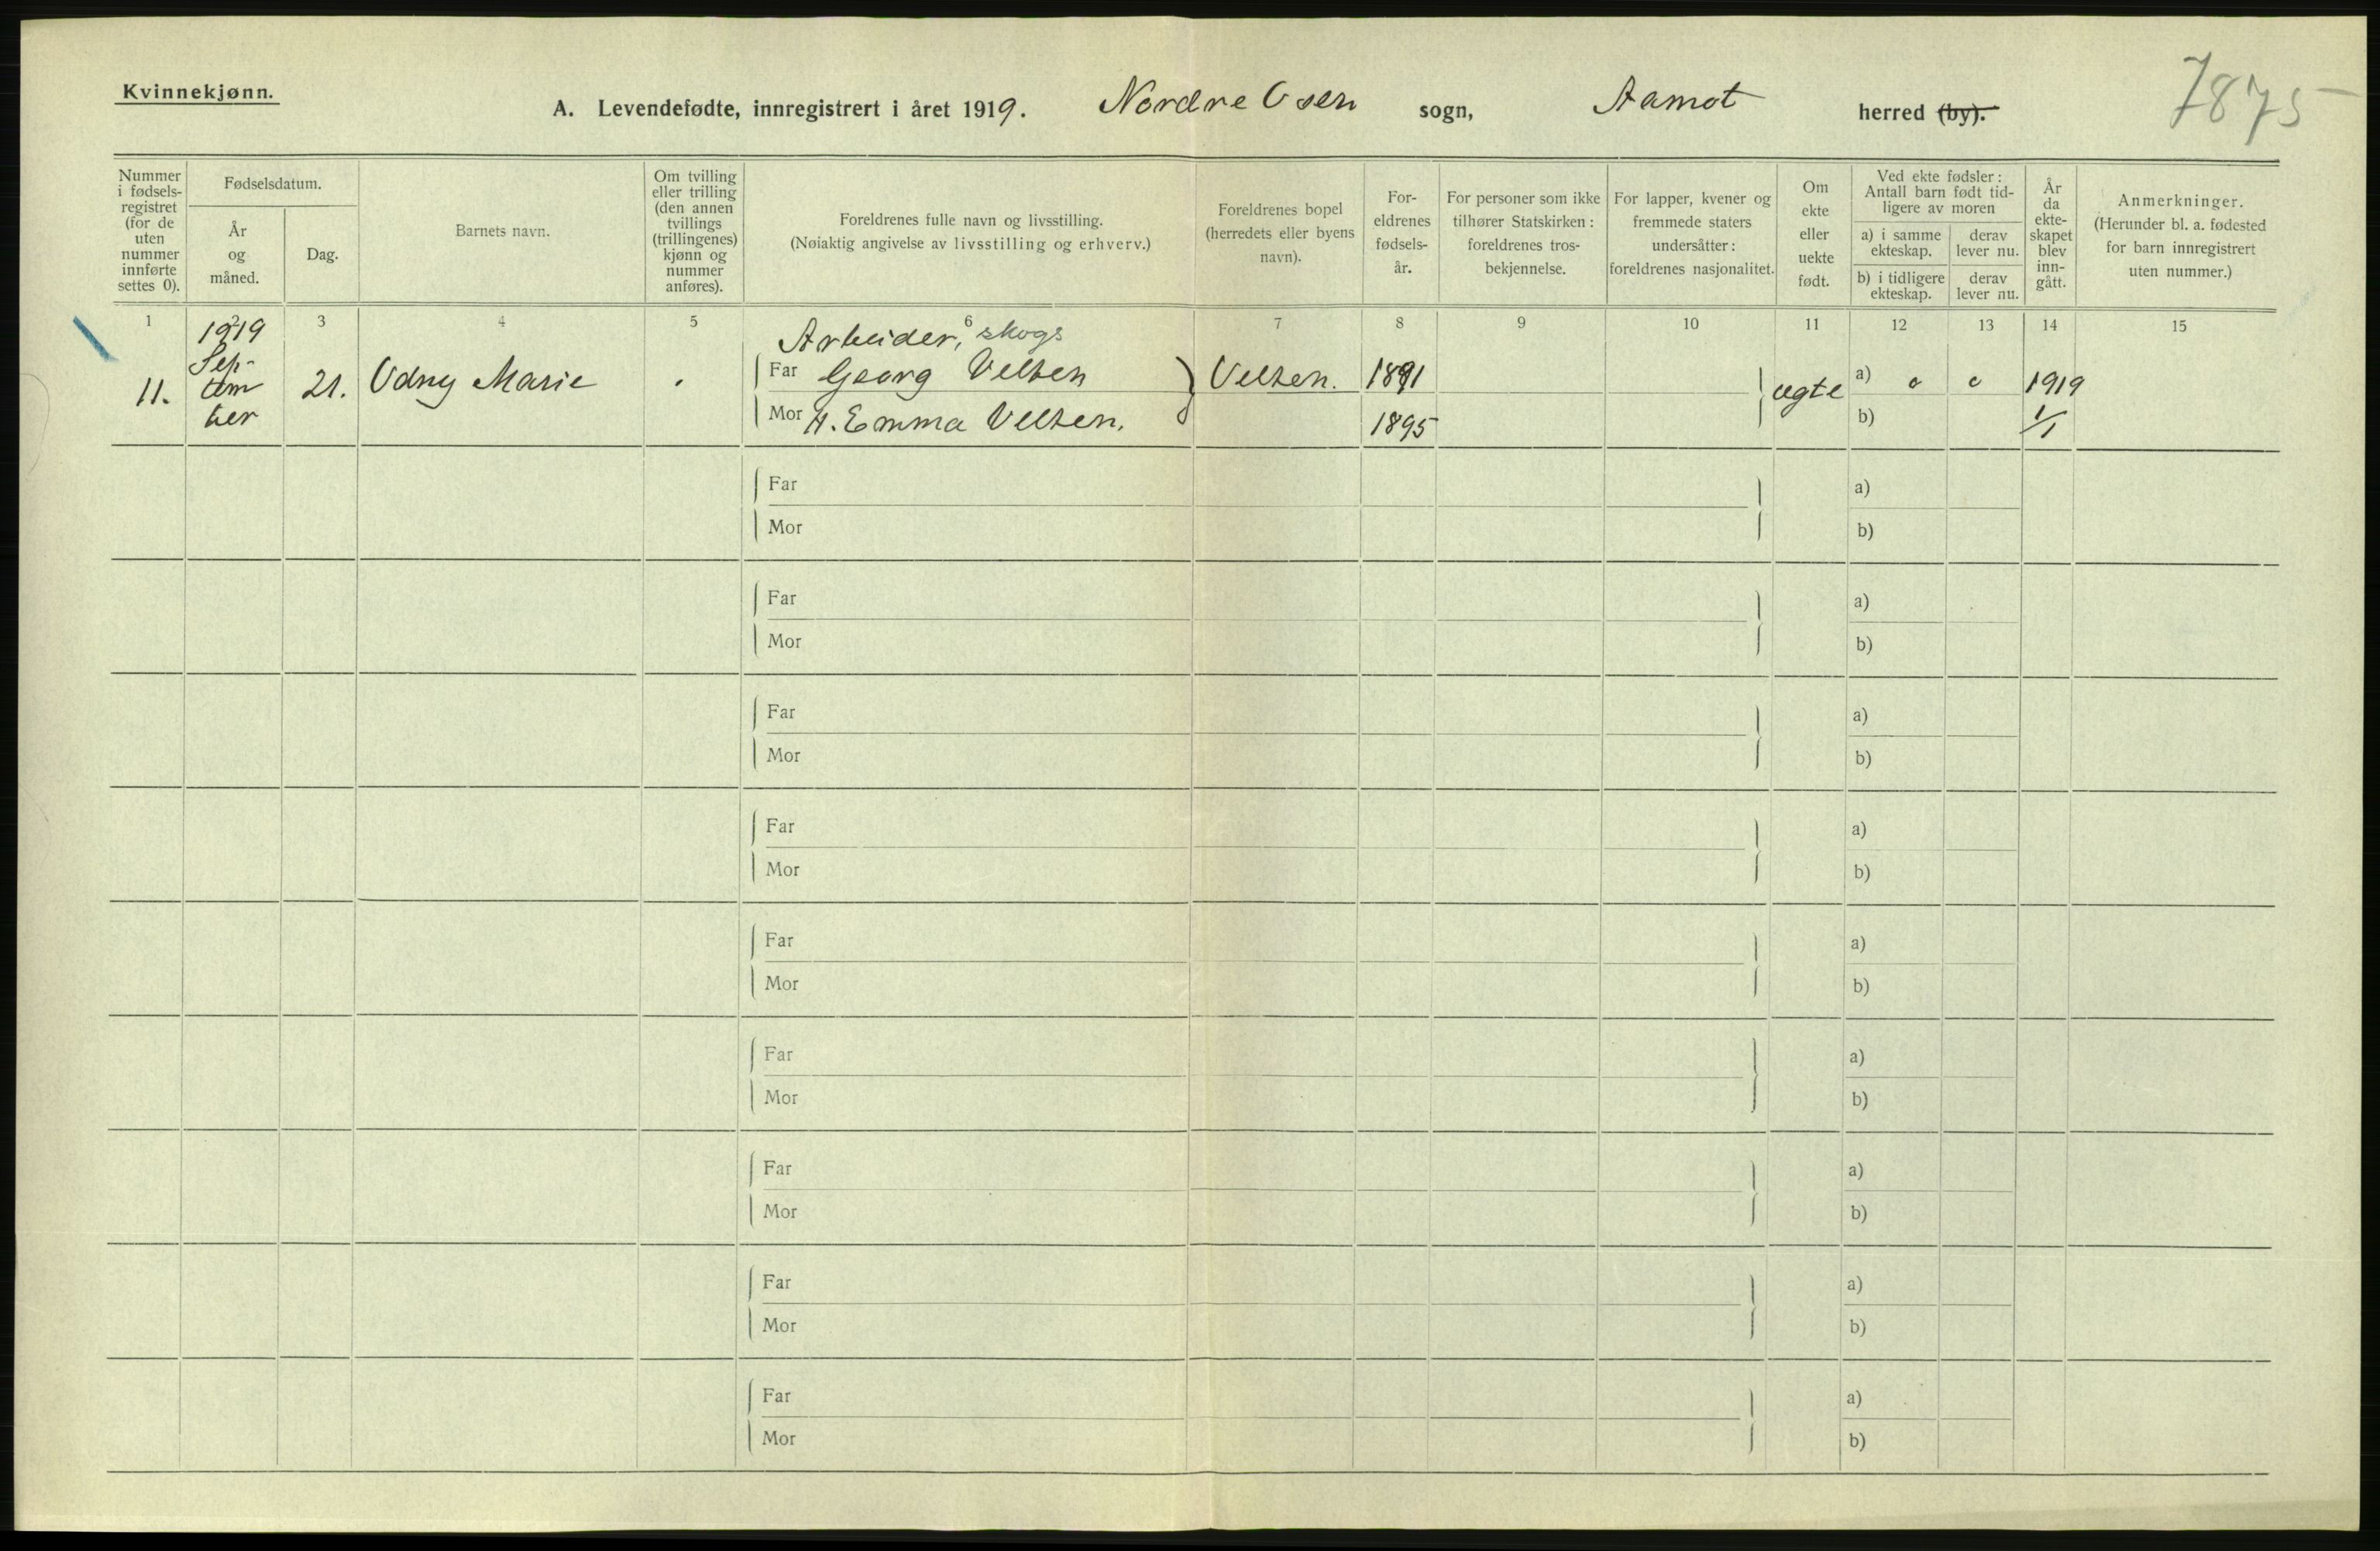 Kvinnekjønn.
A. Levendefødte, innregistrert i året 1919. Nordre Osen sogn, Aamot herred (by).
7875
Nummer i fødsels-registret (for de uten nummer innførte settes 0).
Fødselsdatum.
År og måned.
Dag.
Barnets navn.
Om tvilling eller trilling (den annen tvillings (trillingenes) kjønn og nummer anføres).
Foreldrenes fulle navn og livsstilling.
(Nøiaktig angivelse av livsstilling og erhverv.)
Foreldrenes bopel (herredets eller byens navn).
For-eldrenes fødsels-år.
For personer som ikke tilhører Statskirken: foreldrenes tros-bekjennelse.
For lapper, kvener og fremmede staters undersåtter: foreldrenes nasjonalitet.
Om ekte eller uekte født.
Ved ekte fødsler: Antall barn født tid-ligere av moren
a) i samme ekteskap.
derav lever nu.
b) i tidligere ekteskap.
derav lever nu.
År da ekte-skapet blev inn-gått.
Anmerkninger.
(Herunder bl. a. fødested for barn innregistrert uten nummer.)
1 2 3 4 5 6 7 8 9 10 11 12 13 14 15
1919
Sep-
tem
ber
Arbeider, skogs
11. 21. Odny Marie
Far Georg Velten Velten. 1891 ægte a) 0 0 1919
Mor A. Emma Velten. 1895 b) 1/1
Far a)
Mor b)
Far a)
Mor b)
Far a)
Mor b)
Far a)
Mor b)
Far a)
Mor b)
Far a)
Mor b)
Far a)
Mor b)
Far a)
Mor b)
Far a)
Mor b)